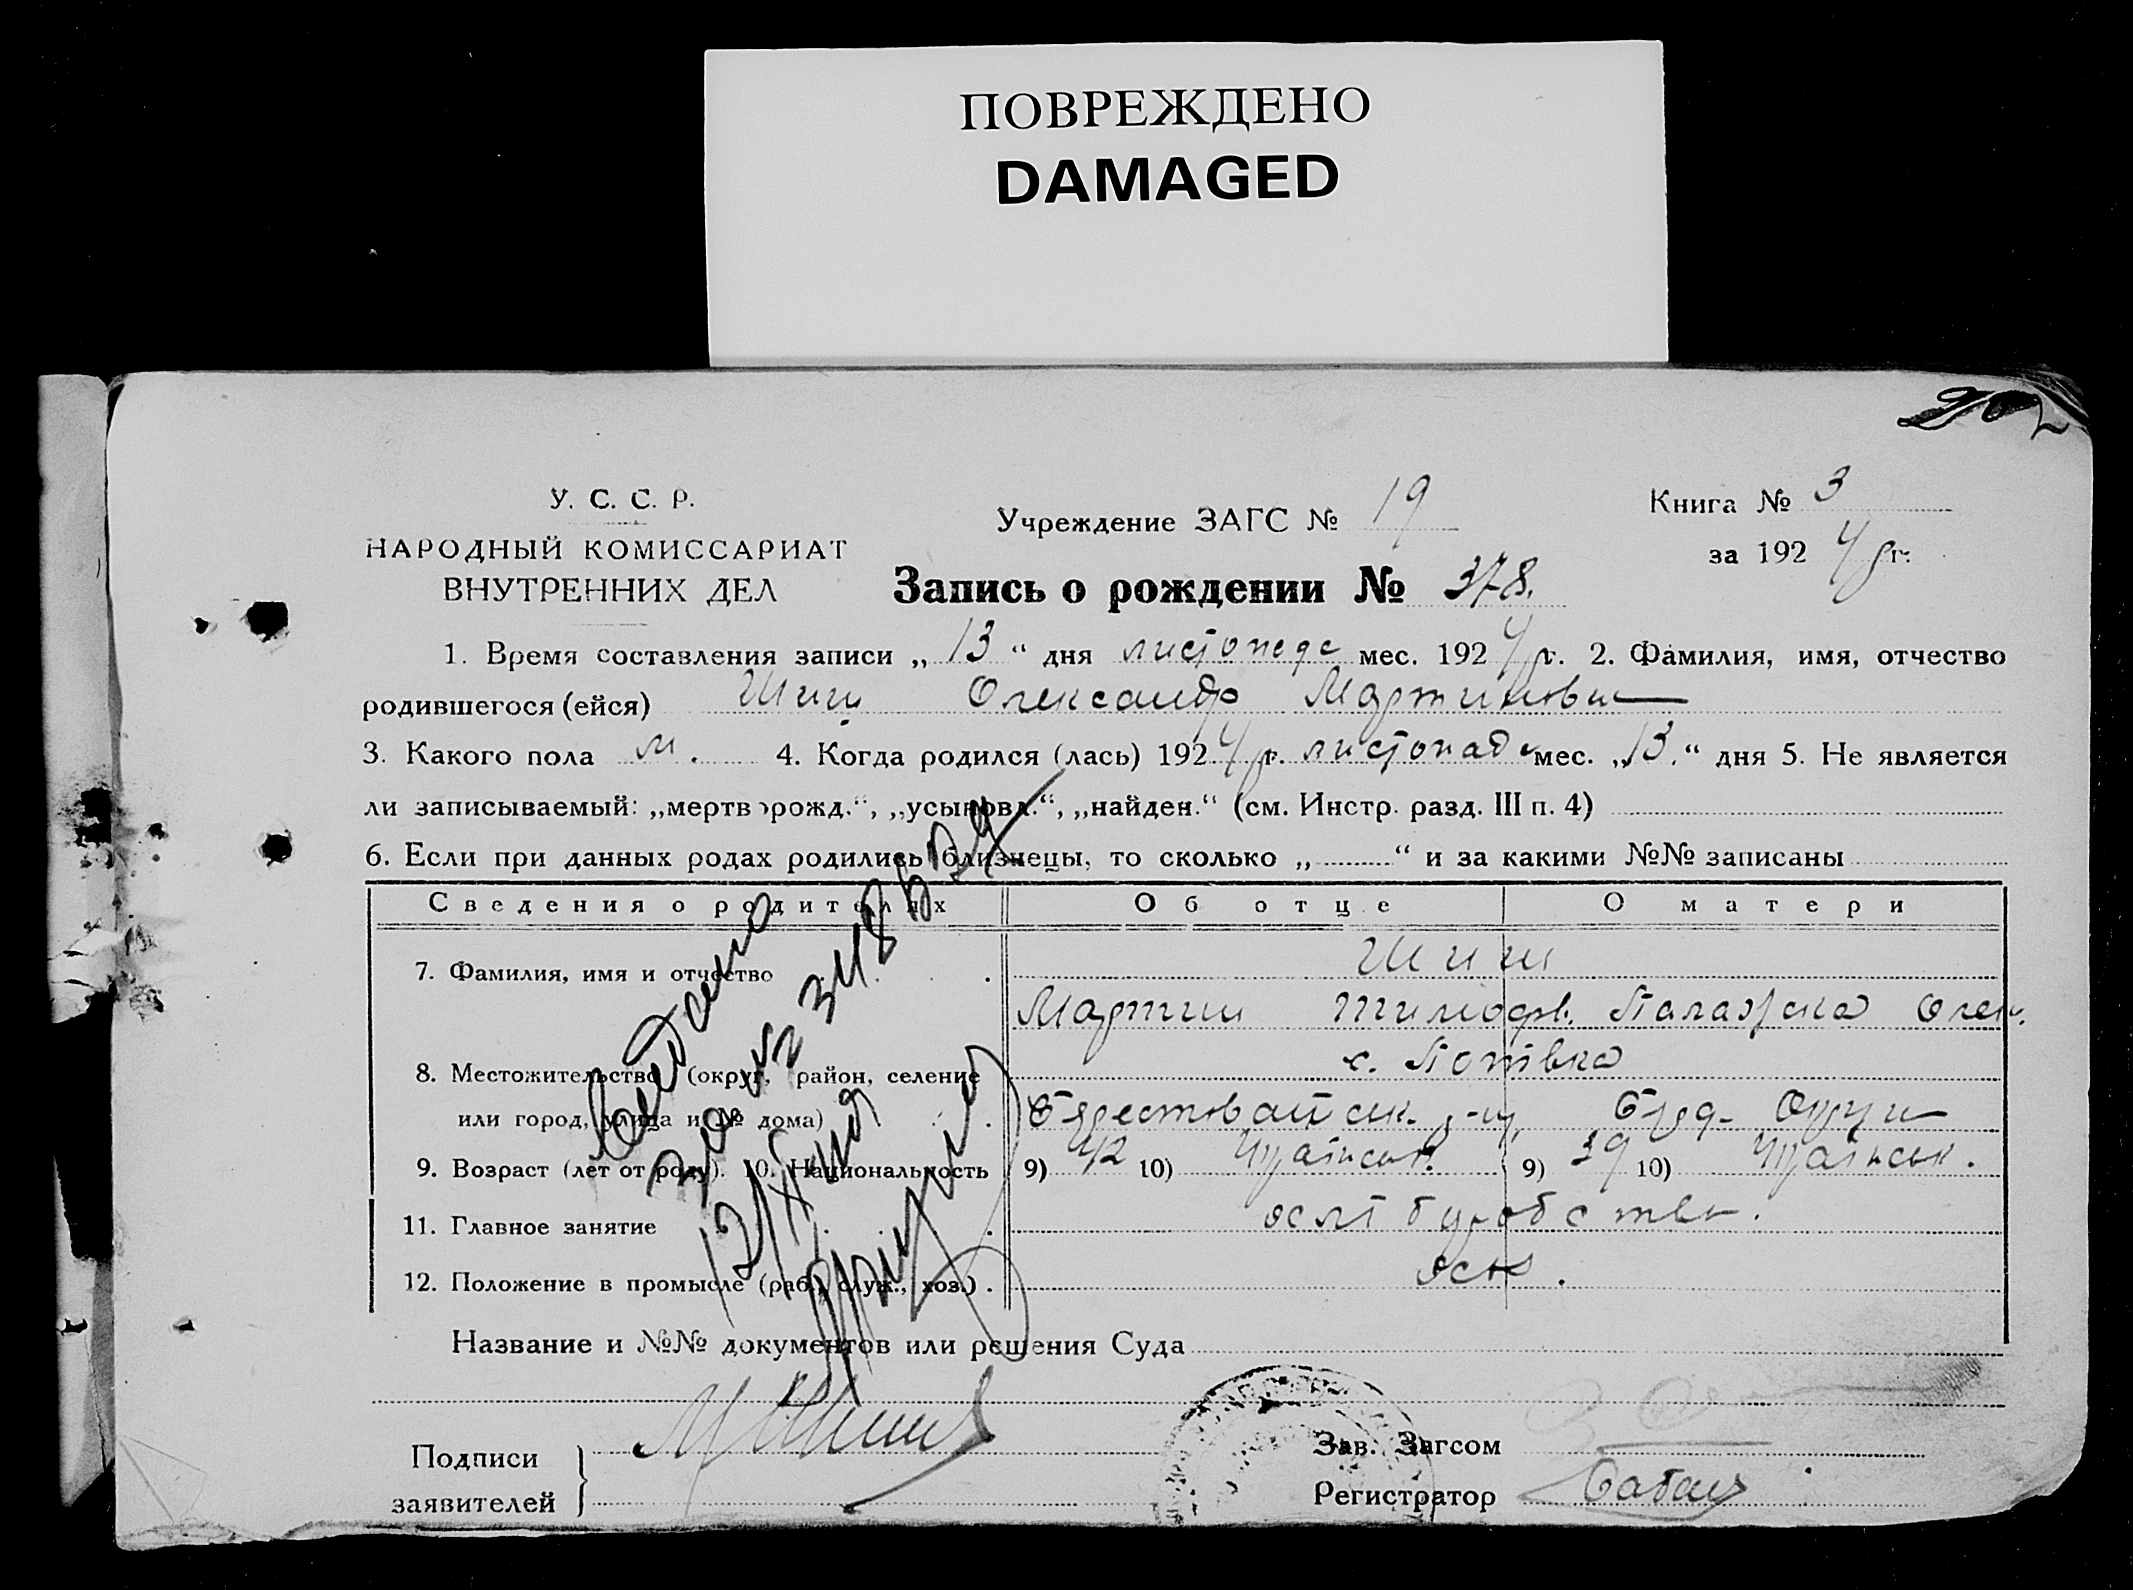 ПОВРЕЖДЕНО
DAMAGED
202
У. С. С. Р.
НАРОДНЫЙ КОМИССАРИАТ
ВНУТРЕННИХ ДЕЛ
Учреждение ЗАГС № 19
Книга № 3
за 1924 г.
Запись о рождении № 378.
1. Время составления записи „ 13 “ дня листопада мес. 1924 г. 2. Фамилия, имя, отчество
родившегося (ейся) Шиш Олександр Мартинович
3. Какого пола м. 4. Когда родился (лась) 1924 г. листопада мес. „ 13. “ дня 5. Не является
ли записываемый: „мертворожд.“, „усыновл.“, „найден.“ (см. Инстр. разд. III п. 4)
6. Если при данных родах родились близнецы, то сколько „ “ и за какими №№ записаны
Сведения о родителях Об отце О матери
7. Фамилия, имя и отчество Шиш
Мартин Тимофв. Палажка Олек.
8. Местожительство (округ, район, селение с. Потівка
или город, улица и № дома)
9. Возраст (лет от роду). 10. Национальность 9) 42 10) 9) 39 10)
11. Главное занятие
12. Положение в промысле (раб., служ., хоз.) .
Название и №№ документов или решения Суда
Подписи
заявителей
М Шиш
Зав. Загсом
Регистратор